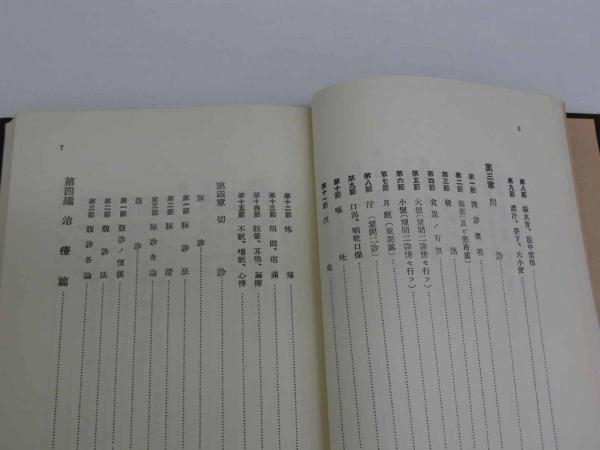 6
第八節
第九節 帶下、大小便
第三章 問診
第一節 問診要項
第二節
第三節 發熱
第四節 食思ノ有無
第五節 大便(望問二診併セ行フ)
第六節 小便(望問二診併セ行フ)
第七節 月經
第八節 汗(望問二診)
第九節 口渇、唱乾口燥
第十節 嘔吐
第十一節 出血
7
第十二節 疼痛
第十三節
第十四節 眩暈、耳鳴、麻痺
第十五節 不眠、嗜眠、心悸
第四章 切診
脈診
第一節 脈診法
第二節 脈證
第三節 脈診各論
腹診
第一節 腹診ノ價値
第二節 腹診法
第三節 腹診各論
第四編 治療篇